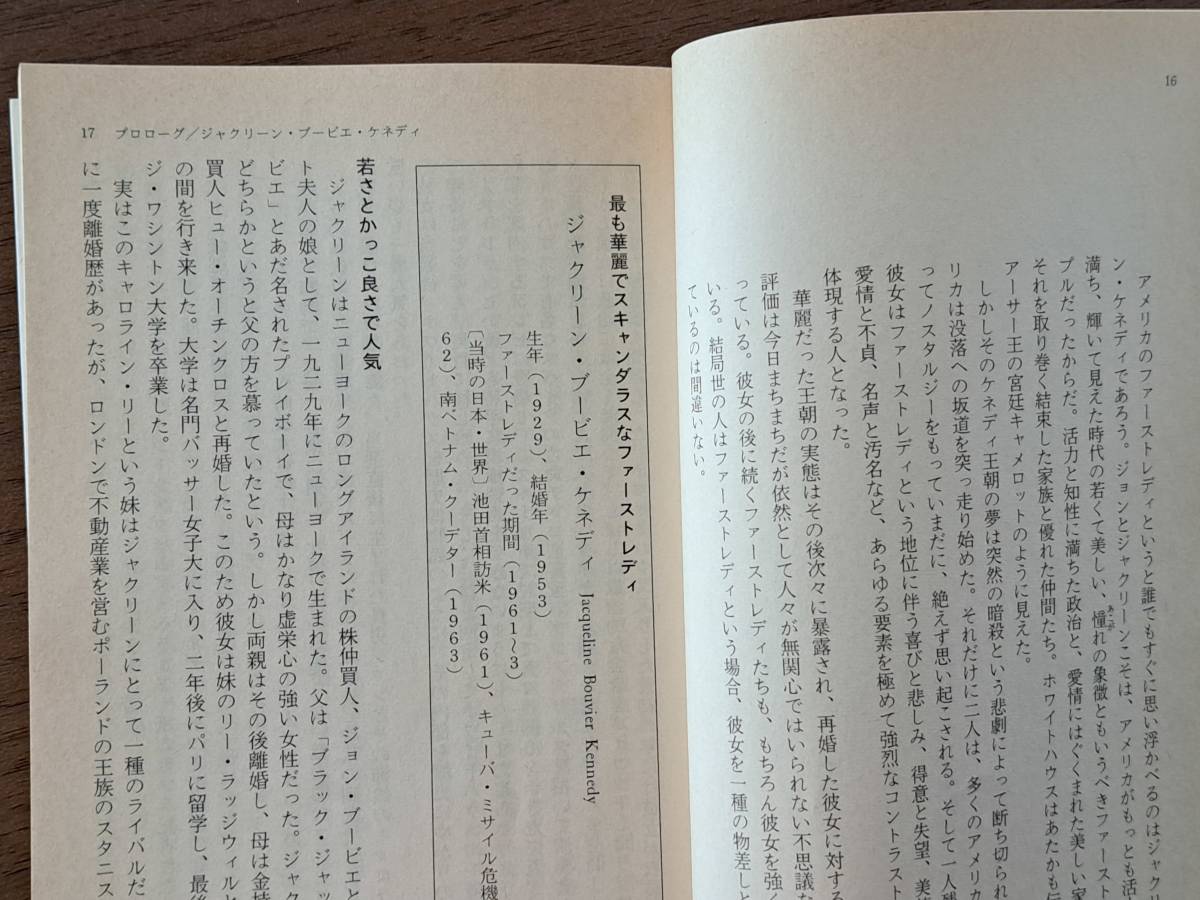 16
アメリカのファーストレディというと誰でもすぐに思い浮かべるのはジャクリ
ン・ケネディであろう。ジョンとジャクリーンこそは、アメリカがもっとも活
満ち、輝いて見えた時代の若くて美しい、憧れの象徴ともいうべきファースト
プルだったからだ。活力と知性に満ちた政治と、愛情にはぐくまれた美しい家
それを取り巻く結束した家族と優れた仲間たち。ホワイトハウスはあたかも伝
アーサー王の宮廷キャメロットのように見えた。
しかしそのケネディ王朝の夢は突然の暗殺という悲劇によって断ち切られ
リカは没落への坂道を突っ走り始めた。それだけに二人は、多くのアメリカ
ってノスタルジーをもっていまだに、絶えず思い起こされる。そして一人残
彼女はファーストレディという地位に伴う喜びと悲しみ、得意と失望、美
愛情と不貞、名声と汚名など、あらゆる要素を極めて強烈なコントラスト
体現する人となった。
華麗だった王朝の実態はその後次々に暴露され、再婚した彼女に対する
評価は今日まちまちだが依然として人々が無関心ではいられない不思議な
っている。彼女の後に続くファーストレディたちも、もちろん彼女を強く
いる。結局世の人はファーストレディという場合、彼女を一種の物差しと
ているのは間違いない。
17 プロローグ／ジャクリーン・ブービエ・ケネディ
最も華麗でスキャンダラスなファーストレディ
ジャクリーン・ブービエ・ケネディ Jacqueline Bouvier Kennedy
生年（1929）、結婚年（1953）
ファーストレディだった期間（1961〜3）
〔当時の日本・世界〕池田首相訪米（1961）、キューバ・ミサイル危機
62）、南ベトナム・クーデター（1963）
若さとかっこ良さで人気
ジャクリーンはニューヨークのロングアイランドの株仲買人、ジョン・ブービエと
ト夫人の娘として、一九二九年にニューヨークで生まれた。父は「ブラック・ジャッ
ビエ」とあだ名されたプレイボーイで、母はかなり虚栄心の強い女性だった。ジャク
どちらかというと父の方を慕っていたという。しかし両親はその後離婚し、母は金持
買人ヒュー・オーチンクロスと再婚した。このため彼女は妹のリー・ラッジウィルと
の間を行き来した。大学は名門バッサー女子大に入り、二年後にパリに留学し、最後
ジ・ワシントン大学を卒業した。
実はこのキャロライン・リーという妹はジャクリーンにとって一種のライバルだ
に一度離婚歴があったが、ロンドンで不動産業を営むポーランドの王族のスタニス